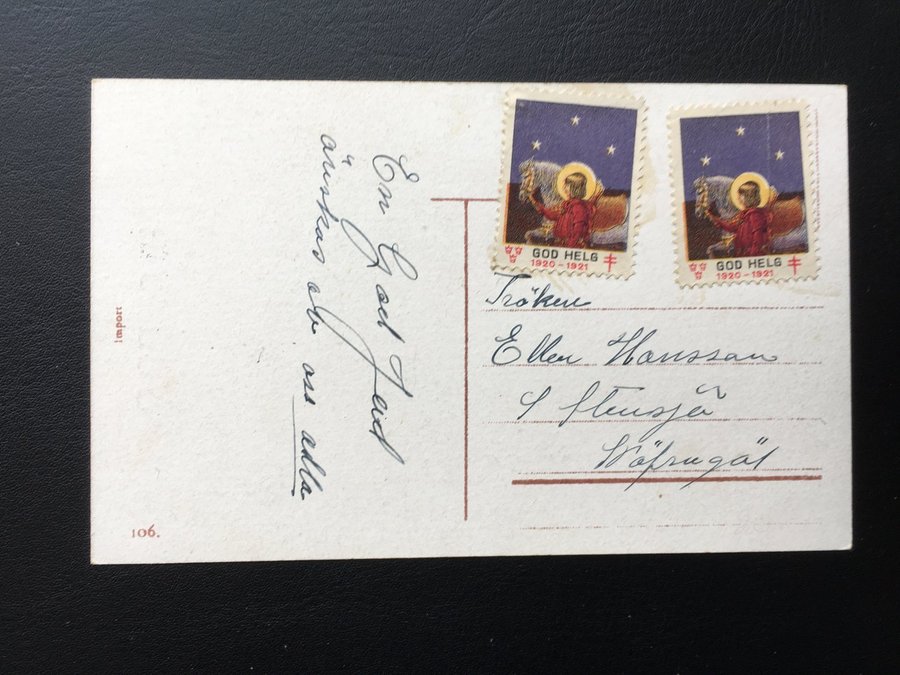 En God Jul
önskas av oss alla
GOD HELG
1920-1921
GOD HELG
1920-1921
Fröken
Ellen Hanssan
Stensjö
Import
106.